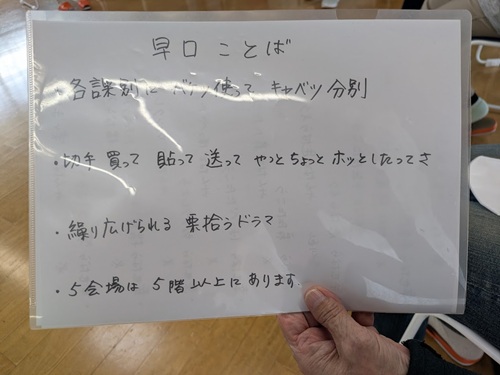 早口ことば
・各課別に 使って キャベツ分別
・切手 買って 貼って 送って やっとちょっと ホッとしたってさ
・繰り広げられる 栗拾うドラマ
・5会場は 5階以上にあります